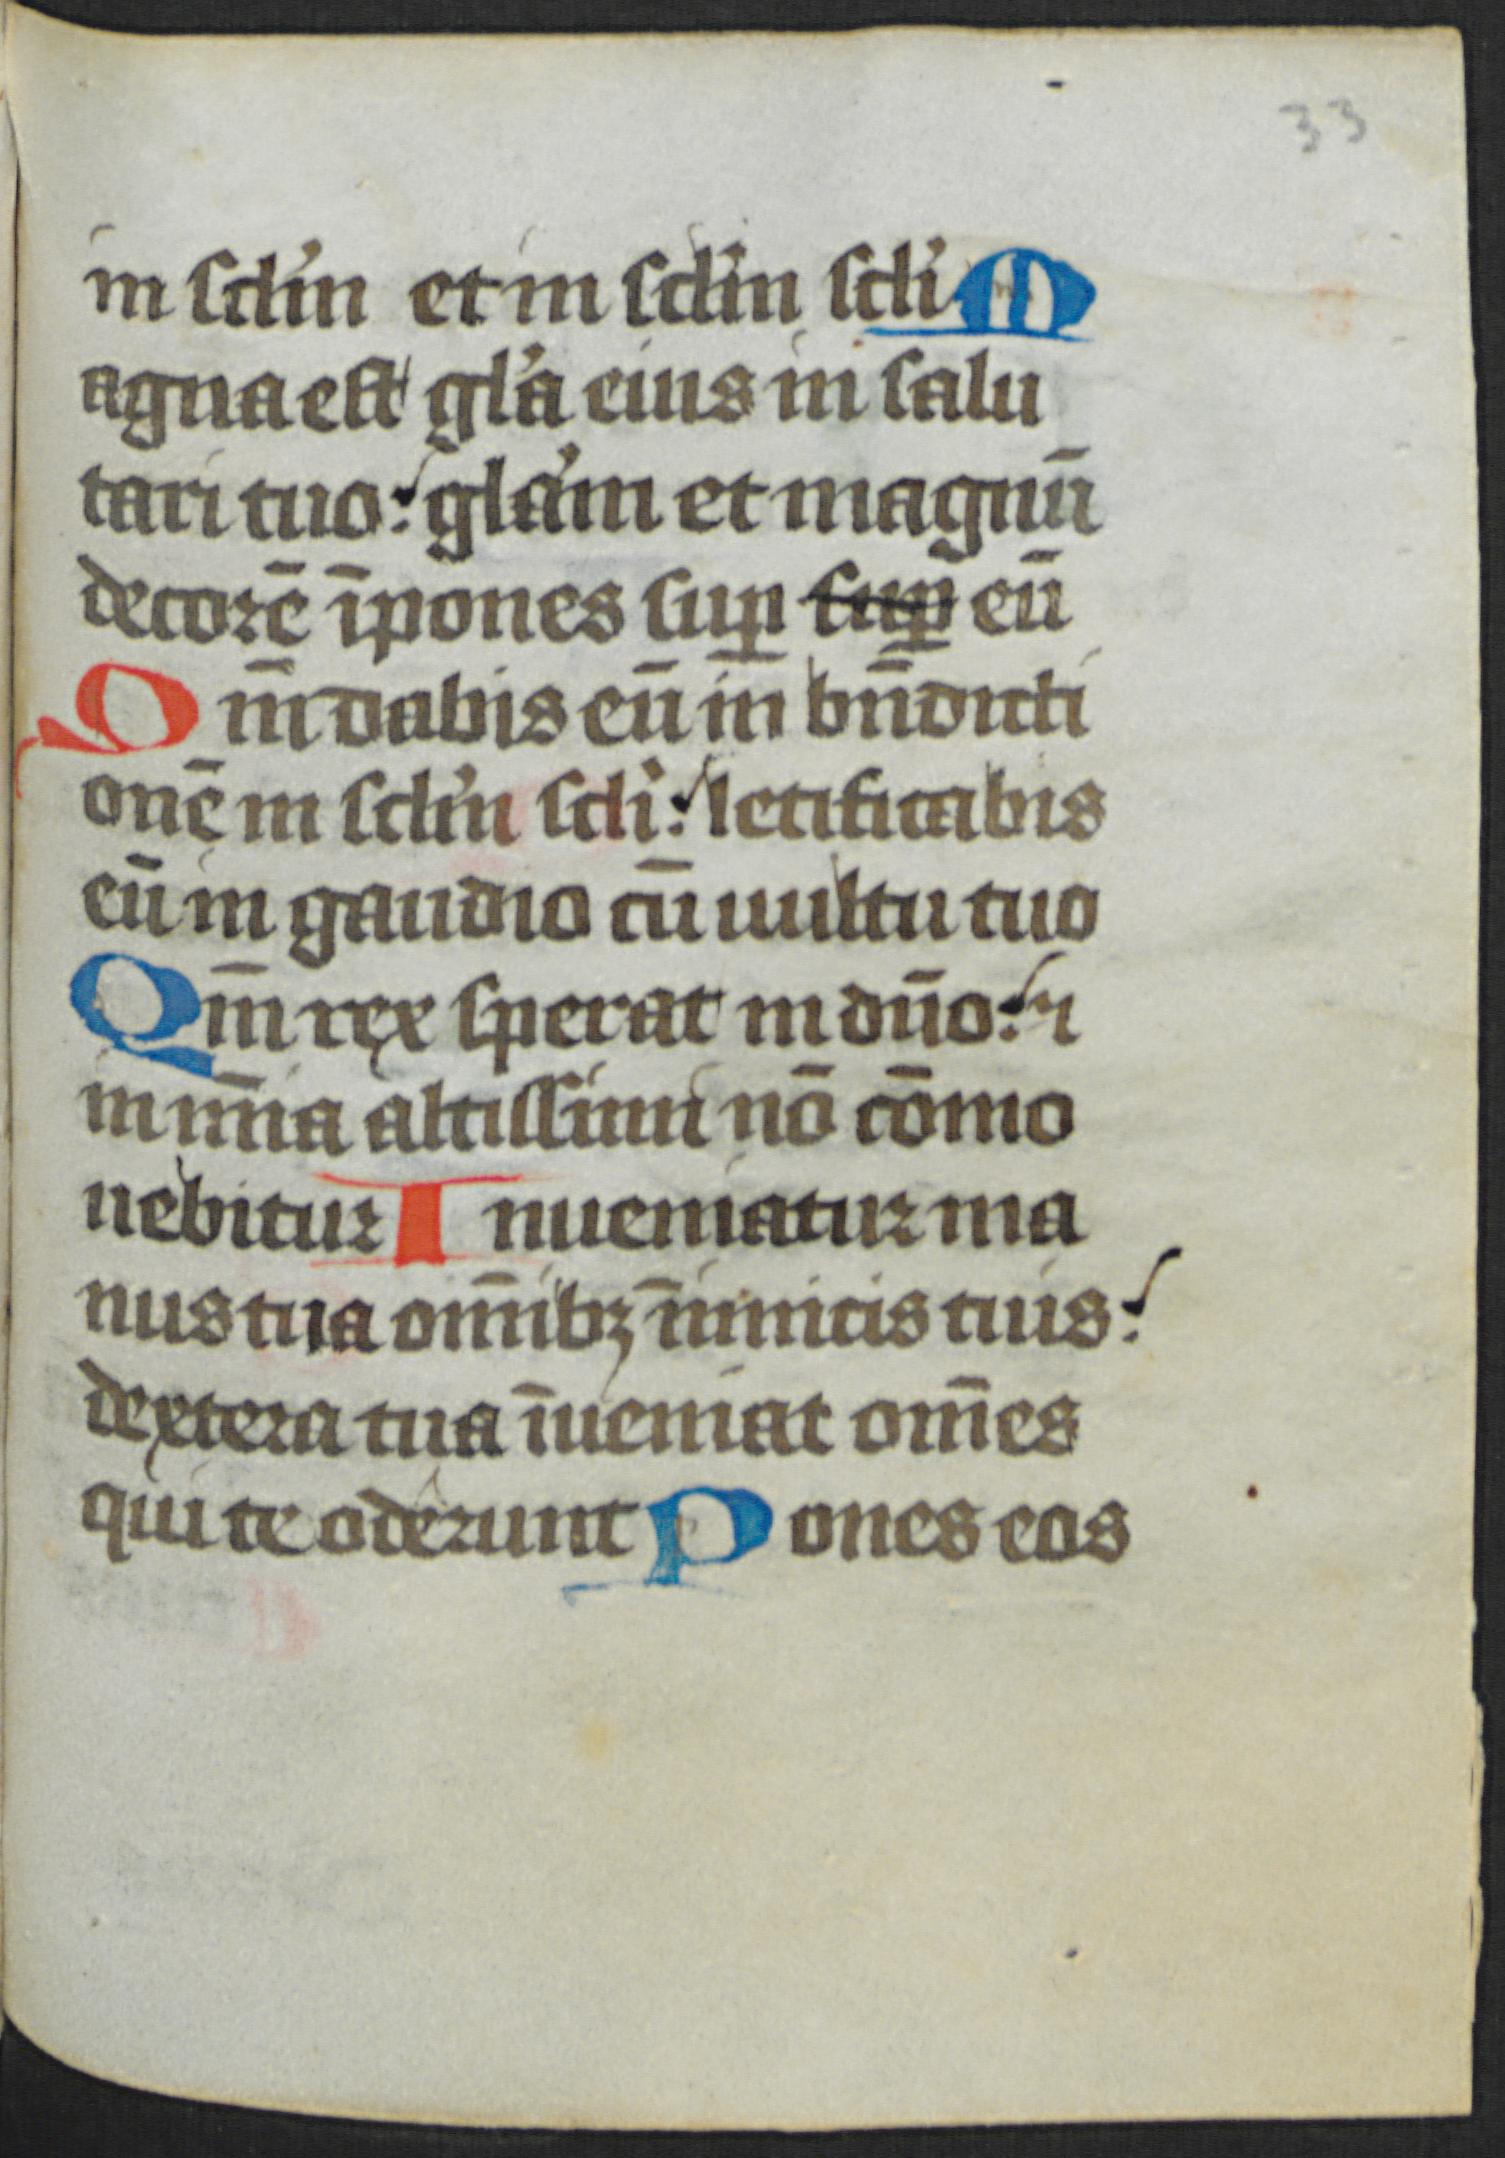 33
in scl'm et in scl'm scl'i M
agna est gl'a eius in salu
tari tuo: gl'am et magnū
decorē īpones sup̱ sup̱ eū
Qm̄ dabis eū in̄ bn̄dicti
onē in scl'm scl'i: letificabis
eū in gaudio cū uultu tuo
Qm̄ rex sperat in dn̄o: ⁊
in mīa altissimi nō cōmo
uebitur Inueniatur ma
nus tua om̄ibꝫ īnimicis tuis:
dextera tua īueniat om̄es
qui te oderunt Pones eos